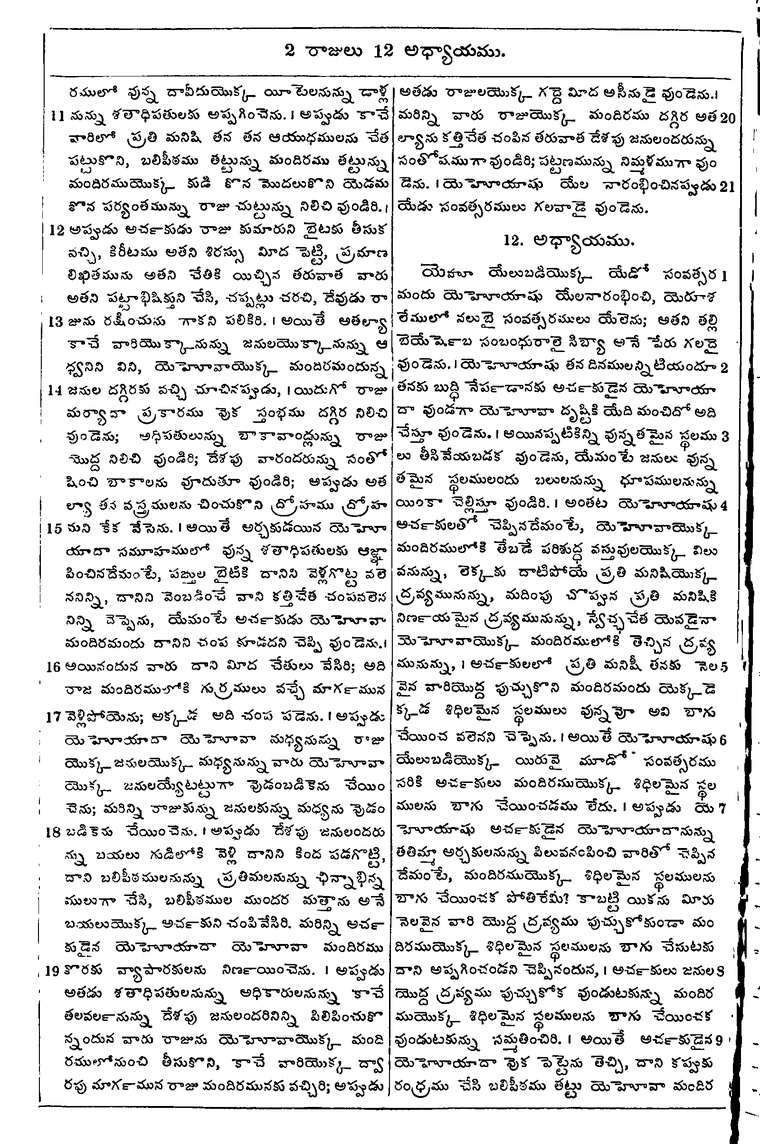 2 రాజులు 12 అధ్యాయము.
రములో వున్న దావీదుయొక్క యీటెలనున్ను డాళ్ల
11 నున్ను శతాధిపతులకు అప్పగించెను. । అప్పుడు కాచే
వారిలో ప్రతి మనిషి తన తన ఆయుధములను చేత
పట్టుకొని, బలిపీఠము తట్టున్ను మందిరము తట్టున్ను
మందిరముయొక్క కుడి కొన మొదలుకొని యెడమ
కొన పర్యంతమున్ను రాజు చుట్టున్ను నిలిచి వుండిరి. ।
12 అప్పుడు అర్చకుడు రాజు కుమారుని బైటకు తీసుక
వచ్చి, కిరీటము అతని శిరస్సు మీద పెట్టి, ప్రమాణ
లిఖితమును అతని చేతికి యిచ్చిన తరువాత వారు
అతని పట్టాభిషిక్తుని చేసి, చప్పట్లు చరచి, దేవుడు రా
13 జును రక్షించును గాకని పలికిరి. । అయితే అతల్యా
కాచే వారియొక్కానున్ను జనులయొక్కానున్ను ఆ
ధ్వనిని విని, యెహోవాయొక్క మందిరమందున్న
14 జనుల దగ్గిరకు వచ్చి చూచినప్పుడు, । యిదుగో రాజు
మర్యాదా ప్రకారము వుక స్తంభము దగ్గిర నిలిచి
వుండెను; అధిపతులున్ను బాకావాండ్లున్ను రాజు
యొద్ద నిలిచి వుండిరి; దేశపు వారందరున్ను సంతో
షించి బాకాలను వూదుతూ వుండిరి; అప్పుడు అత
ల్యా తన వస్త్రములను చించుకొని ద్రోహము ద్రోహ
15 మని కేక వేసెను. । అయితే అర్చకుడయిన యెహో
యాదా సమూహములో వున్న శతాధిపతులకు ఆజ్ఞా
పించినదేమంటే, పఙ్క్తుల బైటికి దానిని వెళ్లగొట్ట వలె
ననిన్ని, దానిని వెంబడించే వాని కత్తిచేత చంపనలెన
నిన్ని చెప్పెను, యేమంటే అర్చకుడు యెహోవా
మందిరమందు దానిని చంప కూడదని చెప్పి వుండెను. ।
16 అయినందున వారు దాని మీద చేతులు వేసిరి; అది
రాజ మందిరములోకి గుర్రములు వచ్చే మార్గమున
17 వెళ్లిపోయెను; అక్కడ అది చంప పడెను. । అప్పుడు
యెహోయాదా యెహోవా నుధ్యనున్ను రాజు
యొక్క జనులయొక్క మధ్యనున్ను వారు యెహోవా
యొక్క జనులయ్యేటట్టుగా వుడంబడికెను చేయిం
చెను; మరిన్ని రాజుకున్ను జనులకున్ను మధ్యను వుడం
18 బడికెను చేయించెను. । అప్పుడు దేశపు జనులందరు
న్ను బయలు గుడిలోకి వెళ్లి దానిని కింద పడగొట్టి,
దాని బలిపీఠములనున్ను ప్రతిమలనున్ను ఛిన్నాభిన్న
ములుగా చేసి, బలిపీఠముల ముందర మత్తాను అనే
బయలుయొక్క అర్చకుని చంపివేసిరి. మరిన్ని అర్చ
కుడైన యెహోయాదా యెహోవా మందిరము
19 కొరకు వ్యాపారకులను నిర్ణయించెను. । అప్పుడు
అతడు శతాధిపతులనున్ను అధికారులనున్ను కాచే
తలవర్లనున్ను దేశపు జనులందరినిన్ని పిలిపించుకొ
న్నందున వారు రాజును యెహోవాయొక్క మంది
రములోనుంచి తీసుకొని, కాచే వారియొక్క ద్వా
రపు మార్గమున రాజు మందిరమునకు వచ్చిరి; అప్పుడు
అతడు రాజులయొక్క గద్దె మీద అసీనుడై వుండెను. ।
మరిన్ని వారు రాజుయొక్క మందిరము దగ్గిర అత 20
ల్యాను కత్తిచేత చంపిన తరువాత దేశపు జనులందరున్ను
సంతోషముగా వుండిరి; పట్టణమున్ను నిమ్మళముగా వుం
డెను. । యెహోయాషు యేల నారంభించినప్పుడు 21
యేడు సంవత్సరములు గలవాడై వుండెను.
12. అధ్యాయము.
యెహూ యేలుబడియొక్క యేడో సంవత్సర 1
మందు యెహోయాషు యేలనారంభించి, యెరూశ
లేములో నలుభై సంవత్సరములు యేలెను; అతని తల్లి
బెయేర్షెబ సంబంధురాలై సిబ్యా అనే పేరు గలదై
వుండెను. । యెహోయాషు తన దినములన్నిటియందూ 2
తనకు బుద్ధి నేర్పడానకు అర్చకుడైన యెహోయా
దా వుండగా యెహోవా దృష్టికి యేది మంచిదో అది
చేస్తూ వుండెను. । అయినప్పటికిన్ని వున్నతమైన స్థలము 3
లు తీసివేయబడక వుండెను, యేమంటే జనులు వున్న
తమైన స్థలములందు బలులనున్ను ధూపములనున్ను
యింకా చెల్లిస్తూ వుండిరి. । అంతట యెహోయాషు 4
అర్చకులతో చెప్పినదేమంటే, యెహోవాయొక్క
మందిరములోకి తేబడే పరిశుద్ధ వస్తువులయొక్క విలు
వనున్ను, లెక్కకు దాటిపోయే ప్రతి మనిషియొక్క
ద్రవ్యమునున్ను, మదింపు చొప్పున ప్రతి మనిషికి
నిర్ణయమైన ద్రవ్యమునున్ను, స్వేచ్ఛచేత యెవడైనా
యెహోవాయొక్క మందిరములోకి తెచ్చిన ద్రవ్య
మునున్ను, । అర్చకులలో ప్రతి మనిషీ తనకు నెల 5
వైన వారియొద్ద పుచ్చుకొని మందిరమందు యెక్కడె
క్కడ శిథిలమైన స్థలములు వున్నవో అవి బాగు
చేయించ వలెనని చెప్పెను. । అయితే యెహోయాషు 6
యేలుబడియొక్క యిరువై మూడో సంవత్సరము
సరికి అర్చకులు మందిరముయొక్క శిథిలమైన స్థల
ములను బాగు చేయించడము లేదు. । అప్పుడు యె 7
హోయాషు అర్చకుడైన యెహోయాదానున్ను
తతిమ్మా అర్చకులనున్ను పిలువనంపించి వారితో చెప్పిన
దేమంటే, మందిరముయొక్క శిథిలమైన స్థలములను
బాగు చేయించక పోతిరేమి? కాబట్టి యికను మీరు
నెలవైన వారి యొద్ద ద్రవ్యము పుచ్చుకోకుండా మం
దిరముయొక్క శిథిలమైన స్థలములను బాగు చేసుటకు
దాని అప్పగించండని చెప్పినందున, । అర్చకులు జనుల 8
యొద్ద ద్రవ్యము పుచ్చుకోక వుండుటకున్ను మందిర
ముయొక్క శిథిలమైన స్థలములను బాగు చేయించక
వుండుటకున్ను సమ్మతించిరి. । అయితే అర్చకుడైన 9
యెహోయాదా వుక పెట్టెను తెచ్చి, దాని కప్పుకు
రంధ్రము చేసి బలిపీఠము తట్టు యెహోవా మందిర